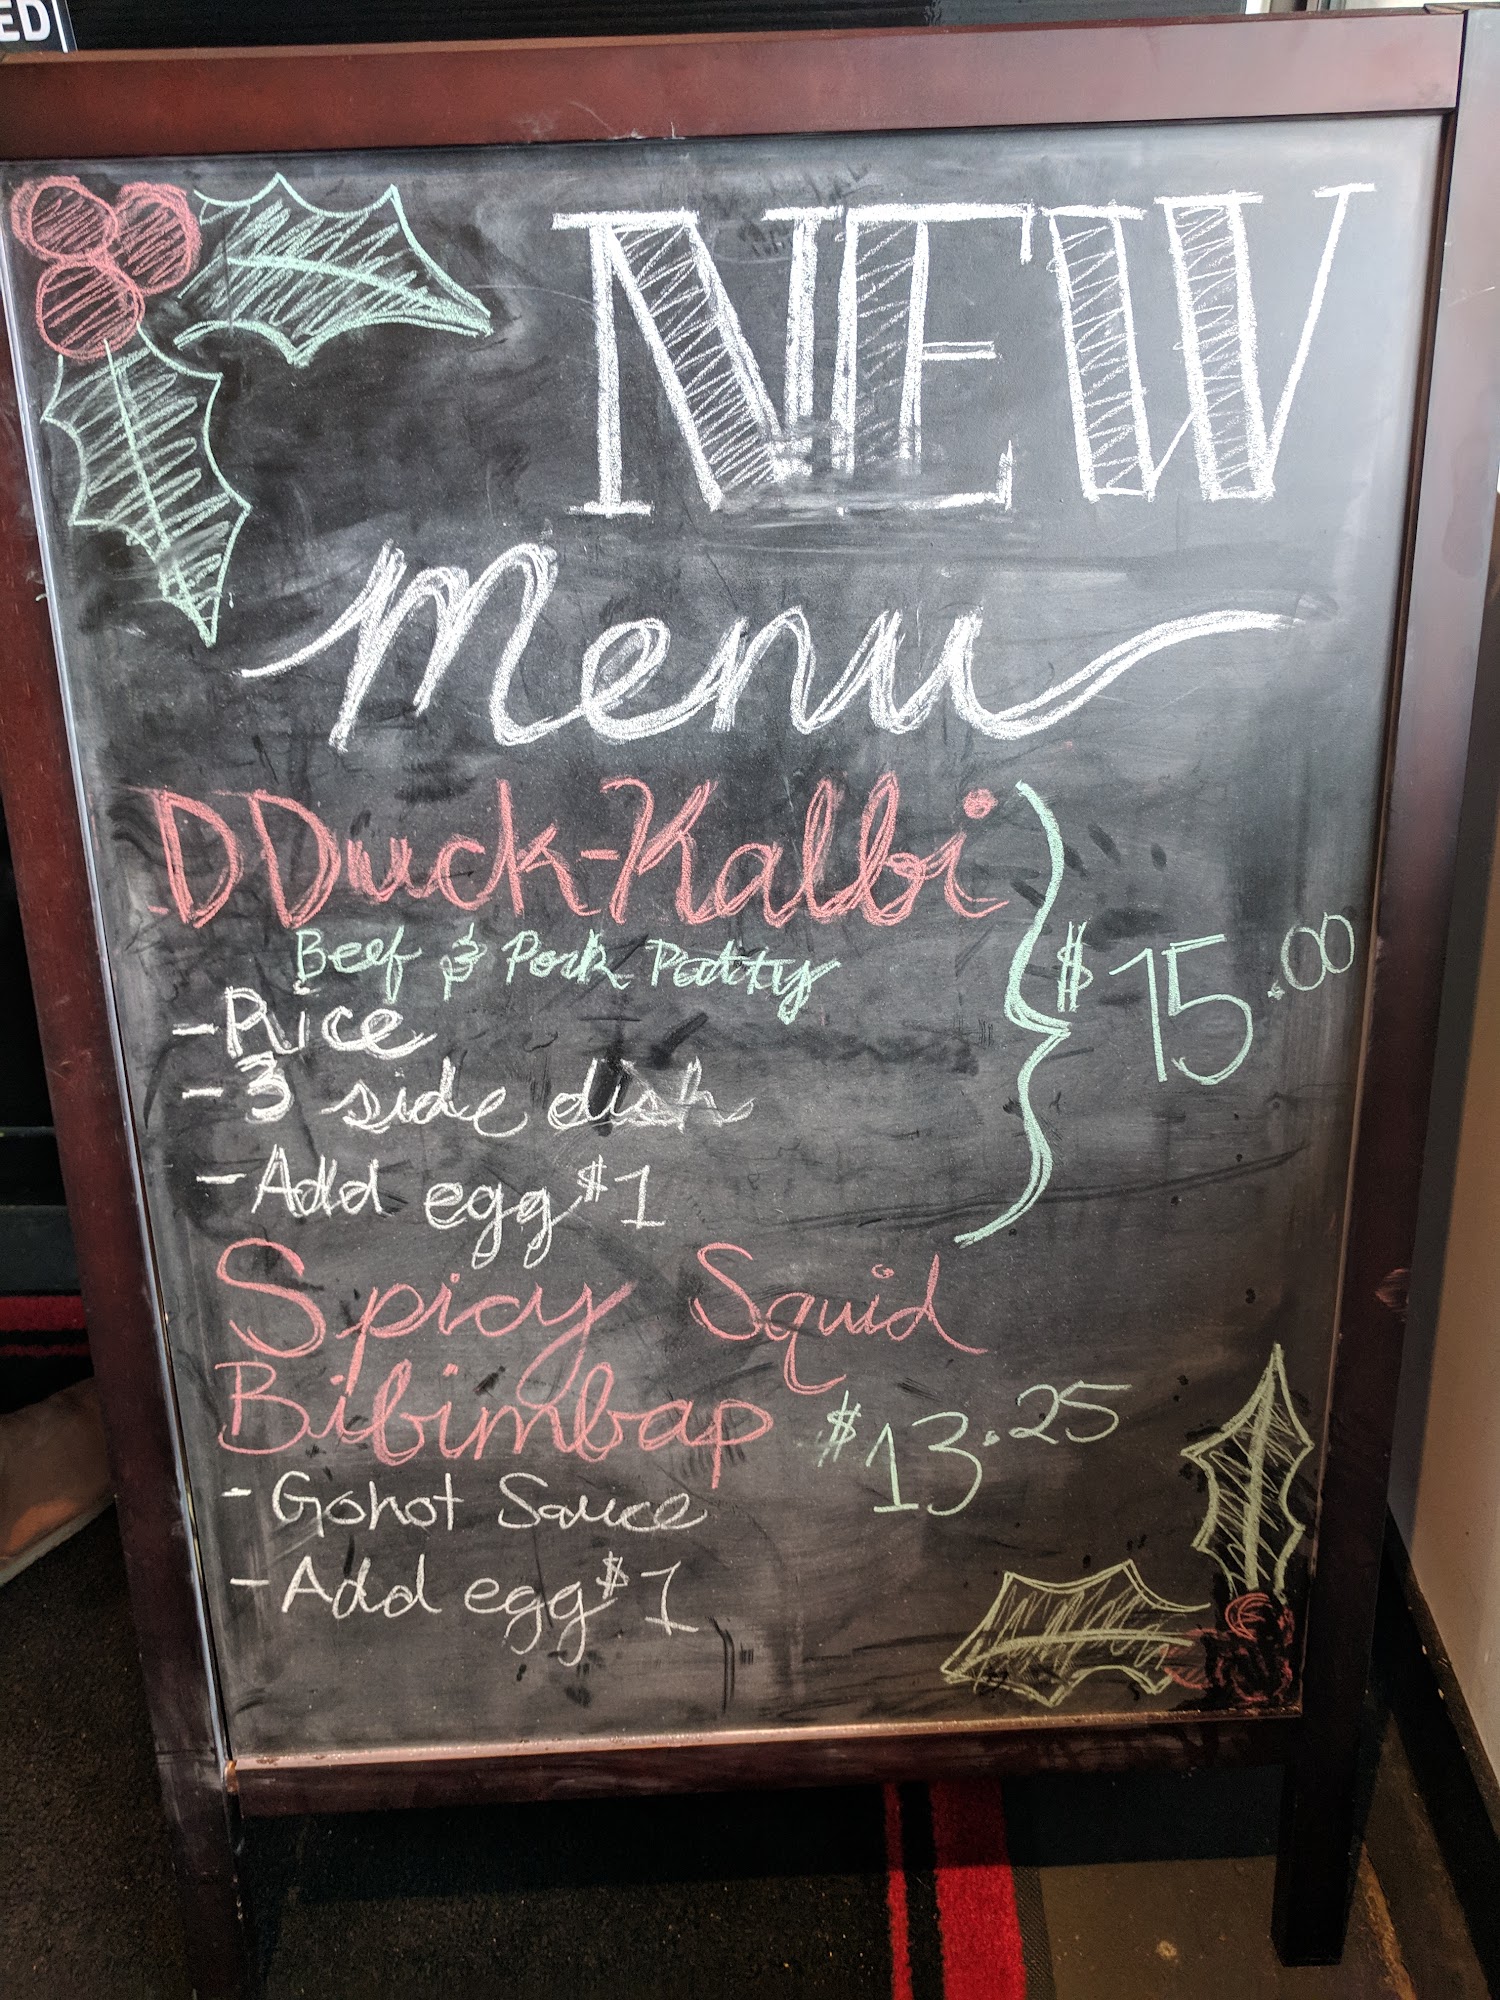 ED
NEW
Menu
DDuck-Kalbi
Beef & Pork Patty
$15.00
-Rice
-3 side dish
-Add egg $1
Spicy Squid
Bibimbap $13.25
-Gohot Sauce
-Add egg $1